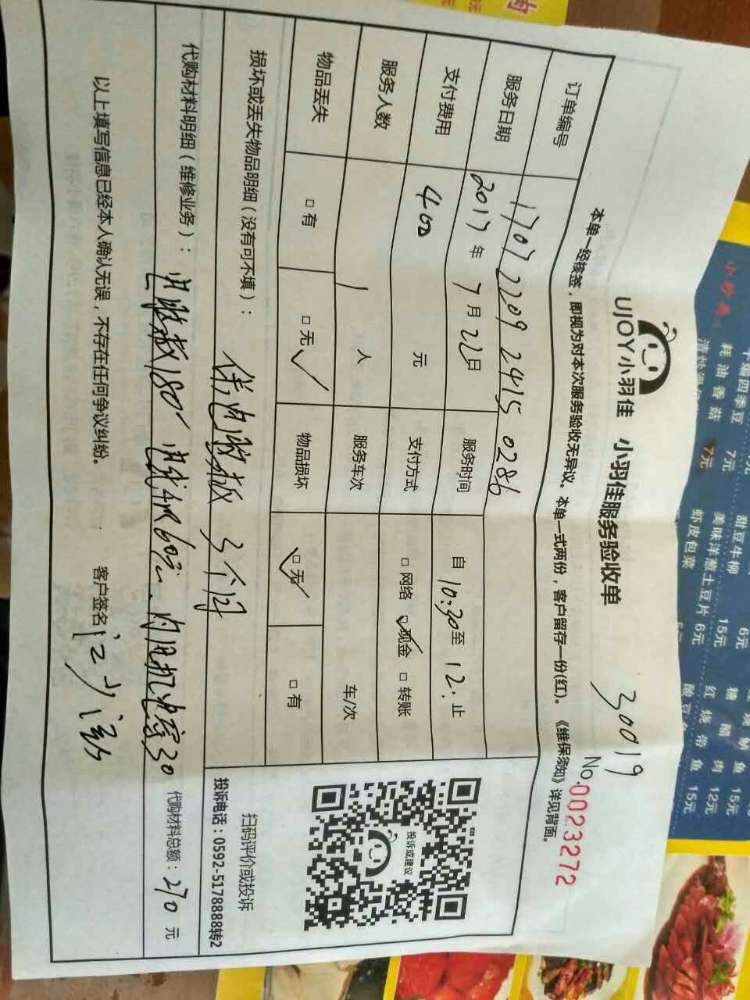 30019
UJOY小羽佳 小羽佳服务验收单
No.0023272
本单一经核签，即视为对本次服务验收无异议。本单一式两份，客户留存一份(红)。《维保须知》详见背面。
订单编号 170722092415 0286
服务日期 2017年7月22日 服务时间 自10:30至12:止
支付费用 400元 支付方式 □网络 ☑现金 □转账
服务人数 1人 服务车次 车/次
物品丢失 □有 □无✓ 物品损坏 ☑无 □有
损坏或丢失物品明细（没有可不填）： 保电脑板 3个月
代购材料明细（维修业务）： 电脑板180 60 30 代购材料总额：270元
以上填写信息已经本人确认无误，不存在任何争议纠纷。 客户签名
投诉或建议
扫码评价或投诉
投诉电话：0592-5178888转2
小炒类
干煸四季豆
耗油香菇 7元
7元
甜豆牛柳
美味洋葱土豆片 15元
虾皮包菜 6元
6元
糖醋
红烧带鱼
酸豆
肉 12元
鱼 15元
15元